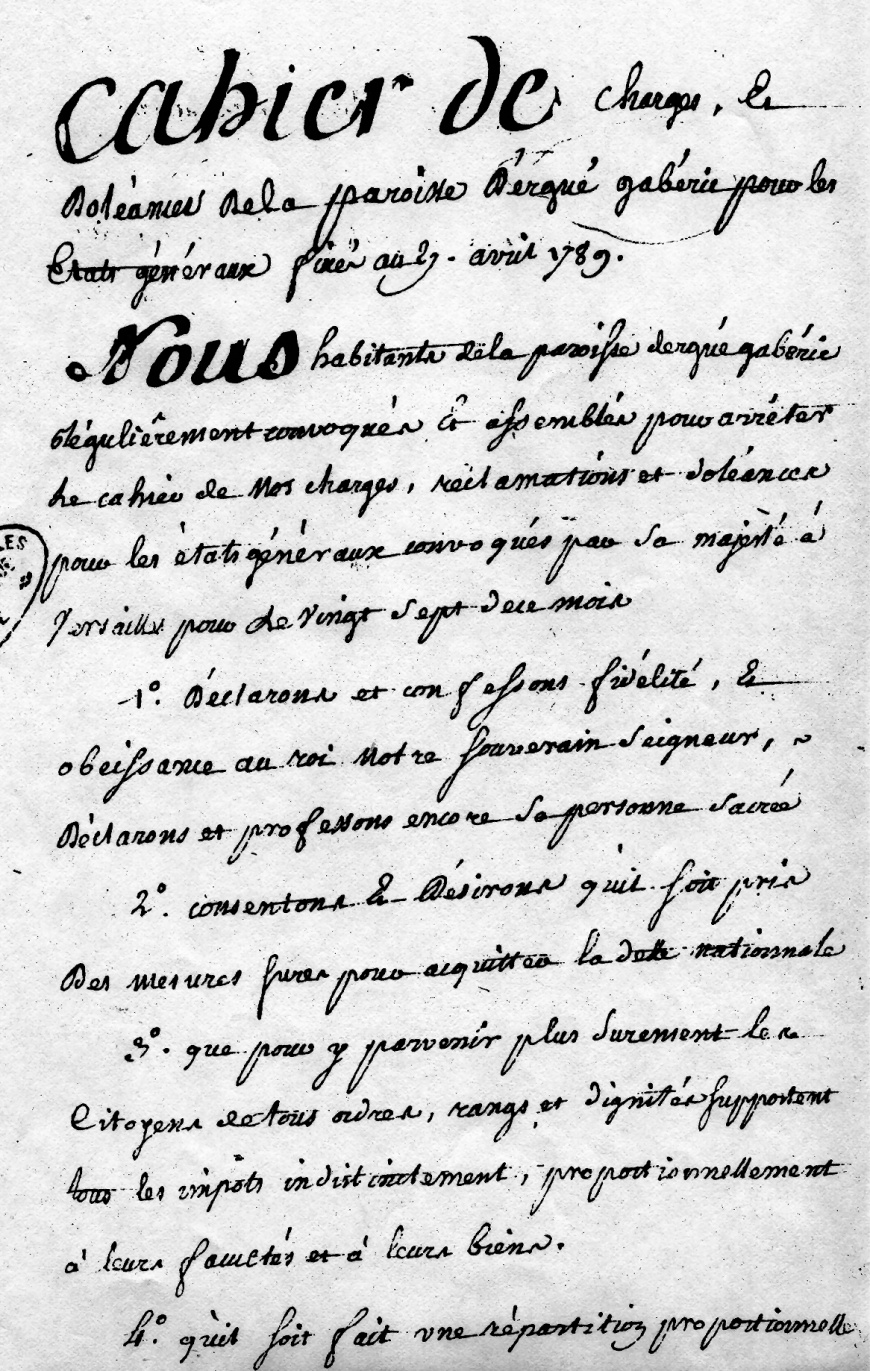 Cahier de charges, &
Doléances de la paroisse D'ergué gabéric pour les
Etats généraux fixés au 27. avril 1789.
Nous habitants de la paroisse d'ergué gabéric
Régulièrement convoqués Et assemblés pour arrêter
Le cahier de Nos charges, réclamations et doléances
pour les états généraux convoqués par Sa majesté à
Versailles pour Le Vingt Sept de ce mois
1°. Déclarons et confessons fidélité, &
obeissance au roi Notre Souverain Seigneur,
Déclarons et professons encore Sa personne Sacrée
2°. consentons & Désirons qu'il soit pris
Des mesures sures pour acquitter la dette nationnale
3°. que pour y parvenir plus Surement les
Citoyens de tous ordres, rangs et dignités supportent
tous les impôts indistinctement, proportionnellement
à leurs facultés et à leurs biens.
4°. qu'il soit fait une répartition proportionnelle
LES